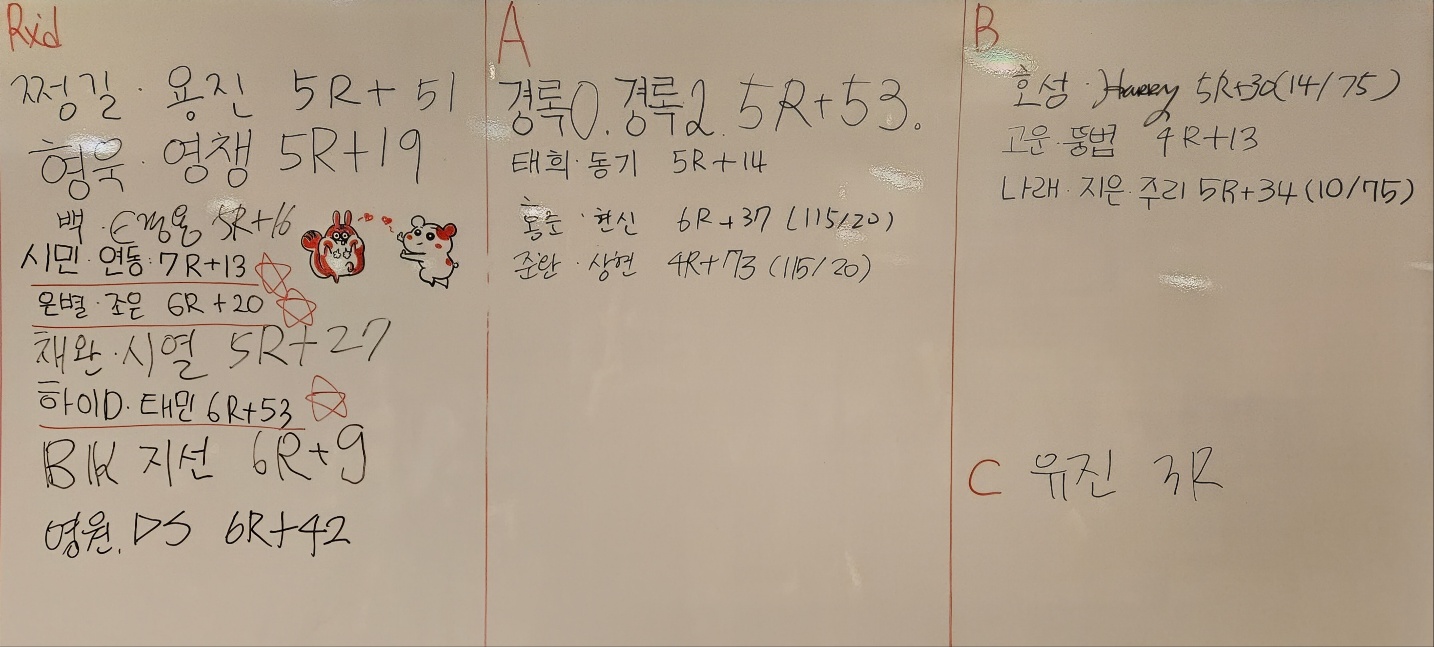 Rx'd
쩡길 · 용진 5R+51
형욱 · 영쟁 5R+19
백 · 5R+16
시민 · 연동 : 7R+13
은별 · 조은 6R+20
채완 · 시열 5R+27
하이D · 태민 6R+53
BK 지선 6R+9
영원. DS 6R+42
A
경록0. 경록2. 5R+53.
태희 · 동기 5R+14
홍준 · 현신 6R+37 (115/20)
준완 · 상현 4R+73 (115/20)
B
호성 · Harry 5R+30(14/75)
고운 · 뚱법 4R+13
나래 · 지은 · 주리 5R+34 (10/75)
C 유진 3R